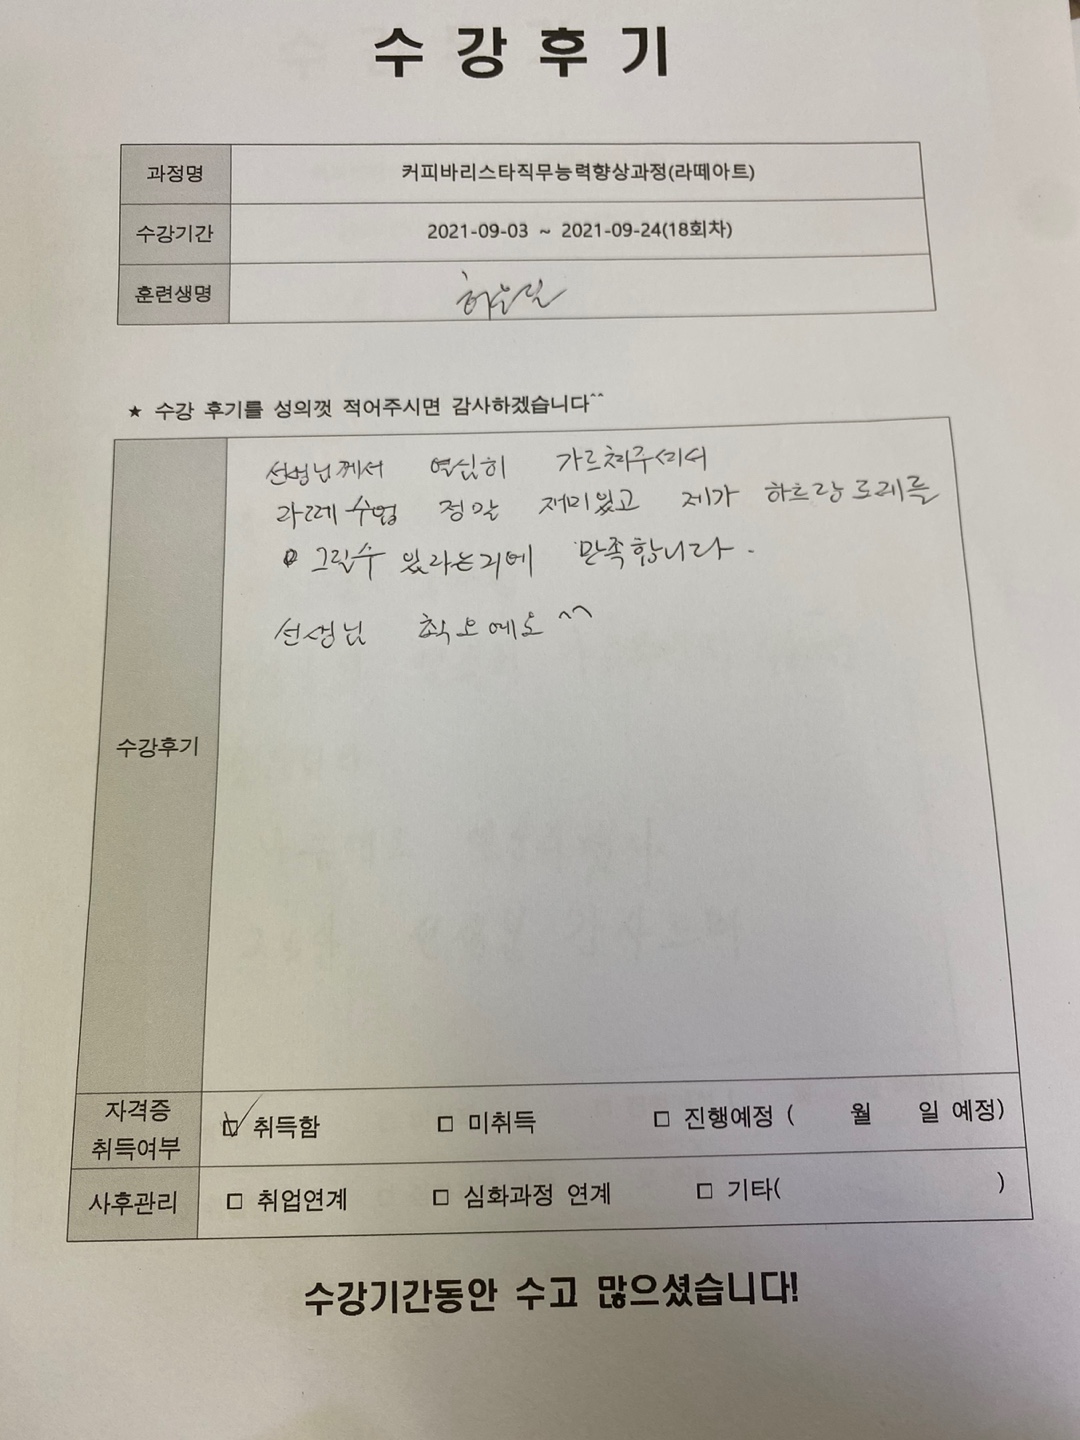 수강후기
과정명 커피바리스타직무능력향상과정(라떼아트)
수강기간 2021-09-03 ~ 2021-09-24(18회차)
훈련생명
★ 수강 후기를 성의껏 적어주시면 감사하겠습니다^^
수강후기
선생님께서 열심히 가르쳐주셔서
라떼 수업 정말 재미있고 제가 하트랑 로제를
그릴수 있다는거에 만족합니다.
선생님 최고예요 ^^
자격증 취득여부 ☑ 취득함 □ 미취득 □ 진행예정 ( 월 일 예정)
사후관리 □ 취업연계 □ 심화과정 연계 □ 기타( )
수강기간동안 수고 많으셨습니다!